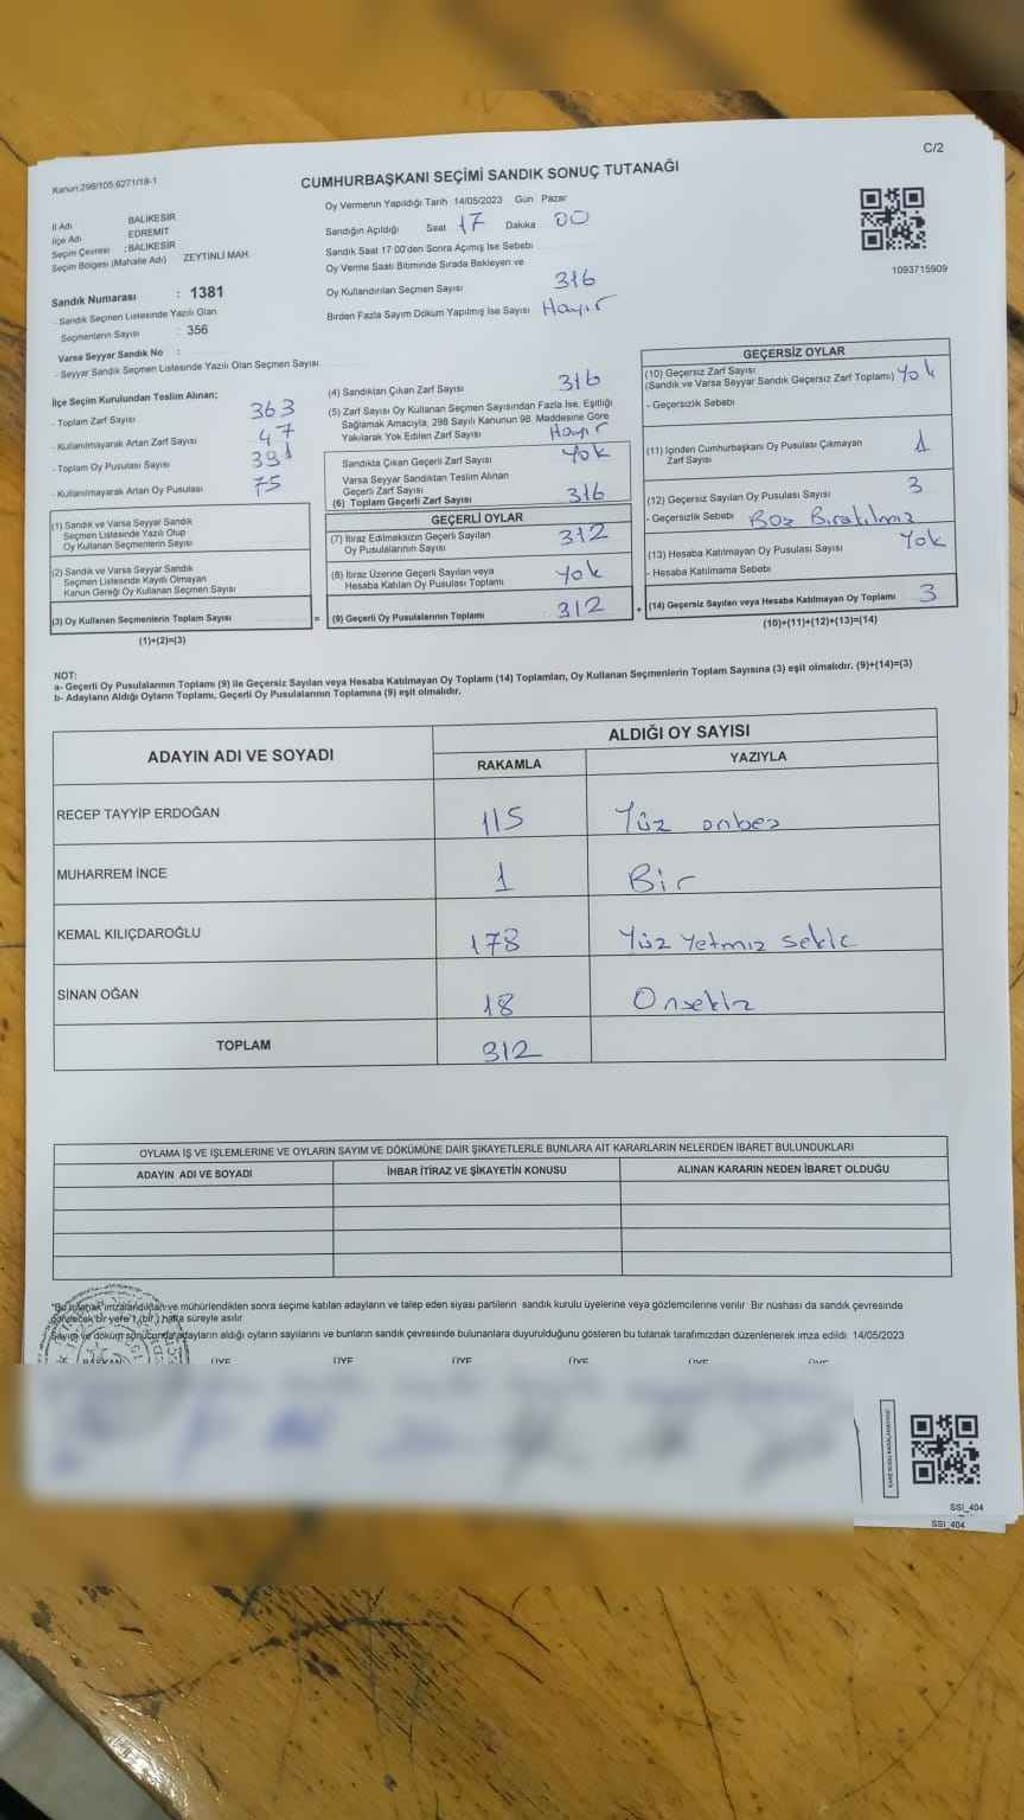 C/2
Kanun:298/105,6271/18-1
CUMHURBAŞKANI SEÇİMİ SANDIK SONUÇ TUTANAĞI
İl Adı BALIKESİR
İlçe Adı EDREMİT
Seçim Çevresi :BALIKESİR
Seçim Bölgesi (Mahalle Adı) ZEYTİNLİ MAH.
Sandık Numarası : 1381
- Sandık Seçmen Listesinde Yazılı Olan
Seçmenlerin Sayısı : 356
Varsa Seyyar Sandık No :
- Seyyar Sandık Seçmen Listesinde Yazılı Olan Seçmen Sayısı
Oy Vermenin Yapıldığı Tarih 14/05/2023 Gün Pazar
Sandığın Açıldığı Saat 17 Dakika 00
Sandık Saat 17:00'den Sonra Açımış İse Sebebi
Oy Verme Saati Bitiminde Sırada Bekleyen ve
Oy Kullandırılan Seçmen Sayısı 316
Birden Fazla Sayım Döküm Yapılmış İse Sayısı Hayır
1093715909
İlçe Seçim Kurulundan Teslim Alınan;
- Toplam Zarf Sayısı 363
- Kullanılmayarak Artan Zarf Sayısı 47
- Toplam Oy Pusulası Sayısı 391
- Kullanılmayarak Artan Oy Pusulası 75
(1) Sandık ve Varsa Seyyar Sandık
Seçmen Listesinde Yazılı Olup
Oy Kullanan Seçmenlerin Sayısı
(2) Sandık ve Varsa Seyyar Sandık
Seçmen Listesinde Kayıtlı Olmayan
Kanun Gereği Oy Kullanan Seçmen Sayısı
(3) Oy Kullanan Seçmenlerin Toplam Sayısı
(1)+(2)=(3)
(4) Sandıktan Çıkan Zarf Sayısı 316
(5) Zarf Sayısı Oy Kullanan Seçmen Sayısından Fazla İse, Eşitliği
Sağlamak Amacıyla, 298 Sayılı Kanunun 98. Maddesine Göre
Yakılarak Yok Edilen Zarf Sayısı Hayır
Sandıkta Çıkan Geçerli Zarf Sayısı Yok
Varsa Seyyar Sandıktan Teslim Alınan
Geçerli Zarf Sayısı
(6) Toplam Geçerli Zarf Sayısı 316
GEÇERLİ OYLAR
(7) İtiraz Edilmeksizin Geçerli Sayılan
Oy Pusulalarının Sayısı 312
(8) İtiraz Üzerine Geçerli Sayılan veya
Hesaba Katılan Oy Pusulası Toplamı Yok
= (9) Geçerli Oy Pusulalarının Toplamı 312
GEÇERSİZ OYLAR
(10) Geçersiz Zarf Sayısı
(Sandık ve Varsa Seyyar Sandık Geçersiz Zarf Toplamı) Yok
- Geçersizlik Sebebi
(11) İçinden Cumhurbaşkanı Oy Pusulası Çıkmayan
Zarf Sayısı 1
(12) Geçersiz Sayılan Oy Pusulası Sayısı 3
- Geçersizlik Sebebi Boz Bıratılmız
(13) Hesaba Katılmayan Oy Pusulası Sayısı Yok
- Hesaba Katılmama Sebebi
+ (14) Geçersiz Sayılan veya Hesaba Katılmayan Oy Toplamı 3
(10)+(11)+(12)+(13)=(14)
NOT:
a- Geçerli Oy Pusulalarının Toplamı (9) ile Geçersiz Sayılan veya Hesaba Katılmayan Oy Toplamı (14) Toplamları, Oy Kullanan Seçmenlerin Toplam Sayısına (3) eşit olmalıdır. (9)+(14)=(3)
b- Adayların Aldığı Oyların Toplamı, Geçerli Oy Pusulalarının Toplamına (9) eşit olmalıdır.
ADAYIN ADI VE SOYADI ALDIĞI OY SAYISI
RAKAMLA YAZIYLA
RECEP TAYYİP ERDOĞAN 115 Yüz onbez
MUHARREM İNCE 1 Bir
KEMAL KILIÇDAROĞLU 178 Yüz Yetmız sekiz
SİNAN OĞAN 18 Onsekiz
TOPLAM 312
OYLAMA İŞ VE İŞLEMLERİNE VE OYLARIN SAYIM VE DÖKÜMÜNE DAİR ŞİKAYETLERLE BUNLARA AİT KARARLARIN NELERDEN İBARET BULUNDUKLARI
ADAYIN ADI VE SOYADI İHBAR İTİRAZ VE ŞİKAYETİN KONUSU ALINAN KARARIN NEDEN İBARET OLDUĞU
"Bu tutanak imzalandıktan ve mühürlendikten sonra seçime katılan adayların ve talep eden siyasi partilerin sandık kurulu üyelerine veya gözlemcilerine verilir. Bir nüshası da sandık çevresinde
görülecek bir yere 1 (bir) hafta süreyle asılır.
Sayım ve döküm sonucunda adayların aldığı oyların sayılarını ve bunların sandık çevresinde bulunanlara duyurulduğunu gösteren bu tutanak tarafımızdan düzenlenerek imza edildi. 14/05/2023
BAŞKAN ÜYE ÜYE ÜYE ÜYE ÜYE ÜYE
SSI_404
SSI_404